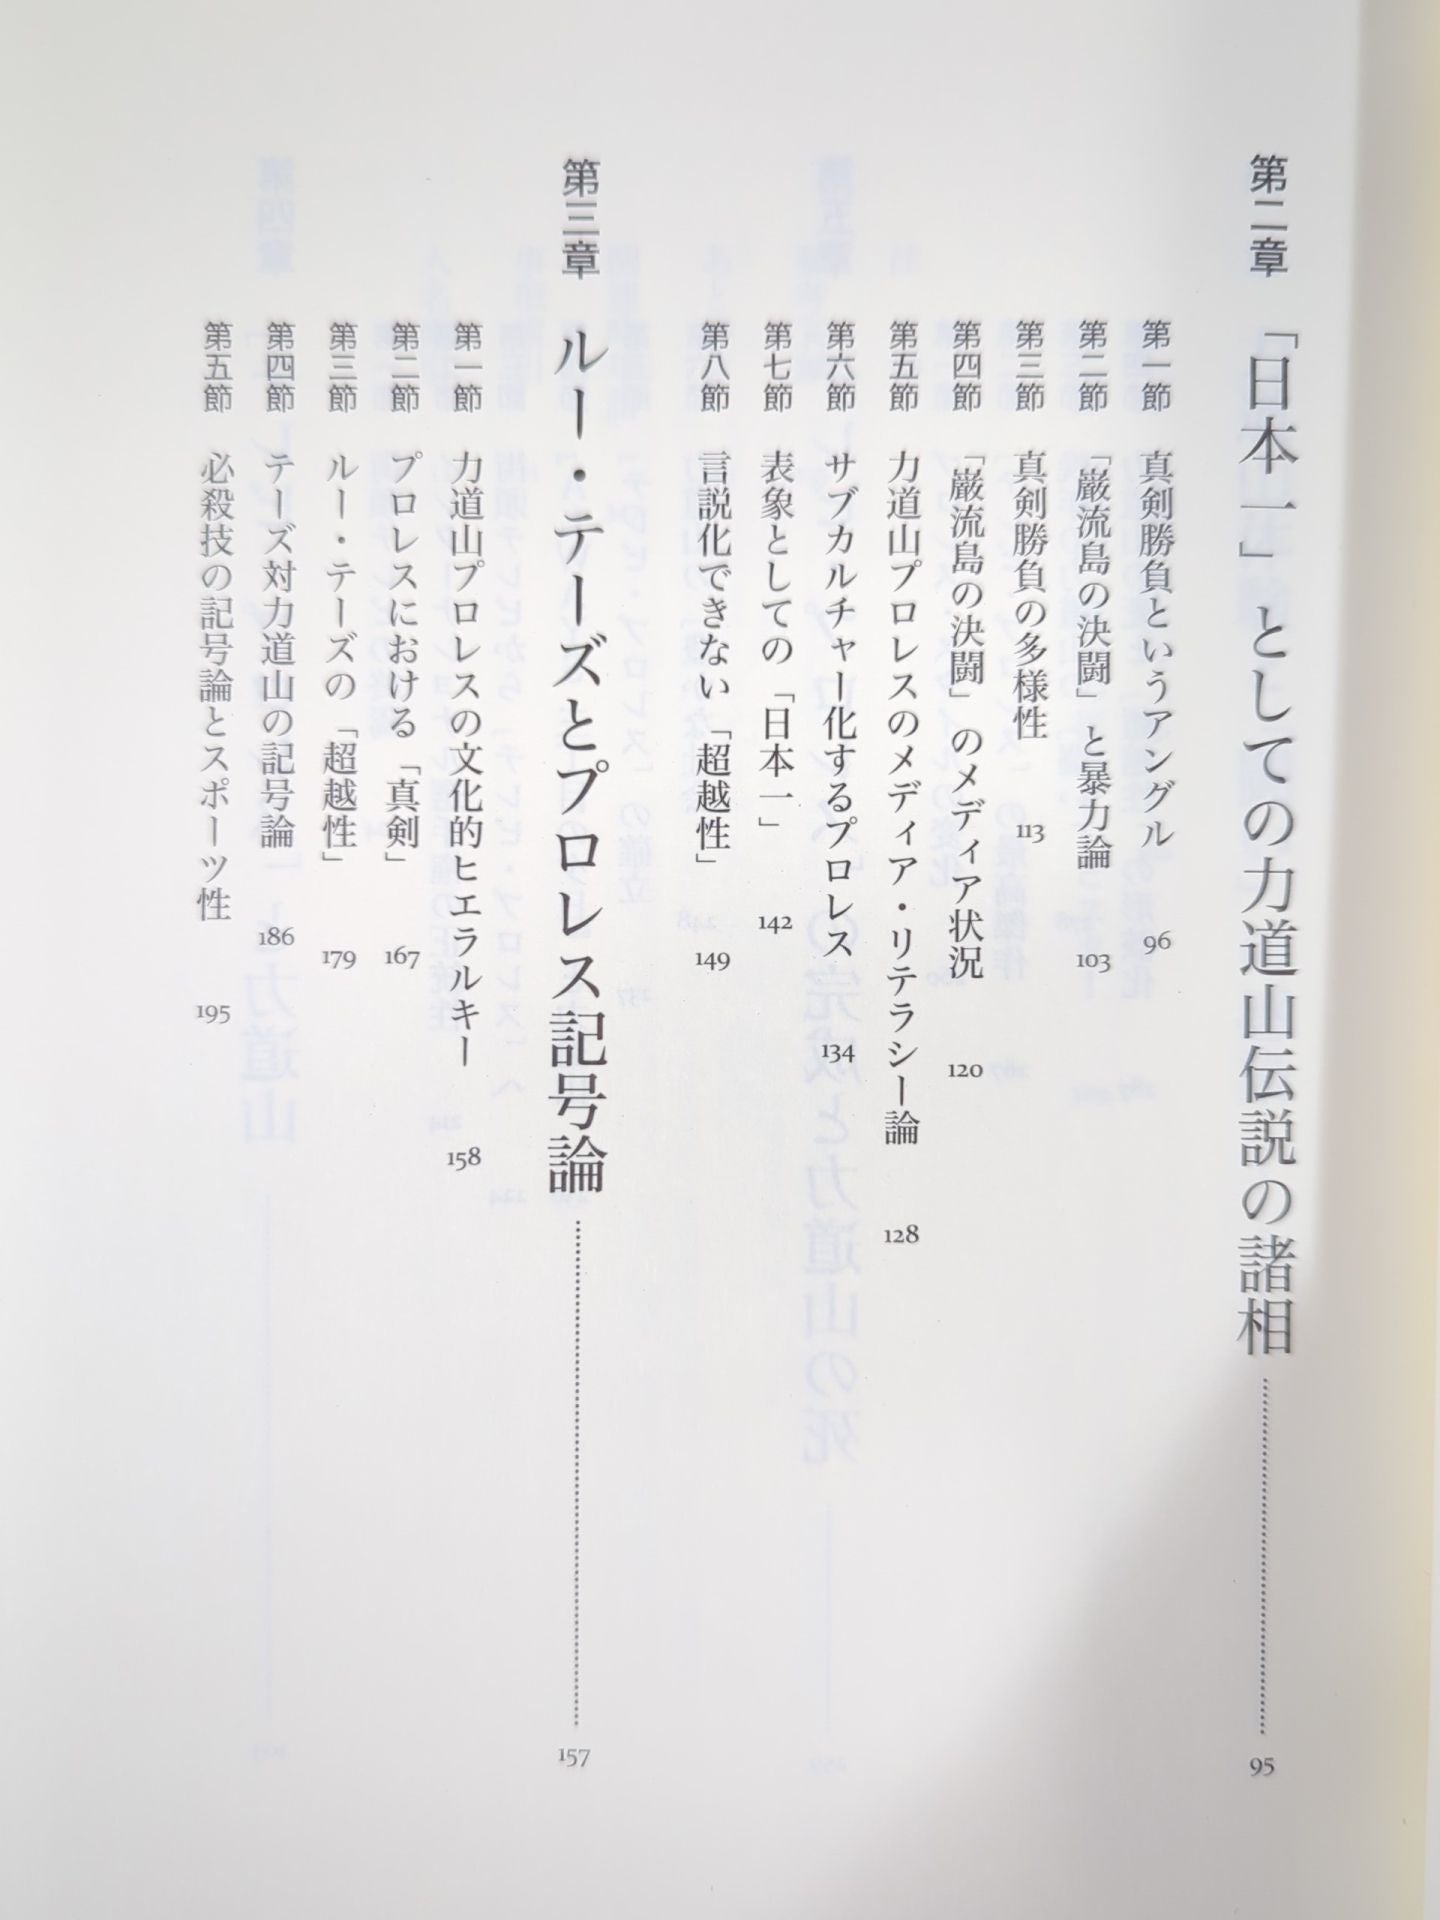 第二章　「日本一」としての力道山伝説の諸相……95
第一節　真剣勝負というアングル　96
第二節　「巌流島の決闘」と暴力論　103
第三節　真剣勝負の多様性　113
第四節　「巌流島の決闘」のメディア状況　120
第五節　力道山プロレスのメディア・リテラシー論　128
第六節　サブカルチャー化するプロレス　134
第七節　表象としての「日本一」　142
第八節　言説化できない「超越性」　149
第三章　ルー・テーズとプロレス記号論……157
第一節　力道山プロレスの文化的ヒエラルキー　158
第二節　プロレスにおける「真剣」　167
第三節　ルー・テーズの「超越性」　179
第四節　テーズ対力道山の記号論　186
第五節　必殺技の記号論とスポーツ性　195